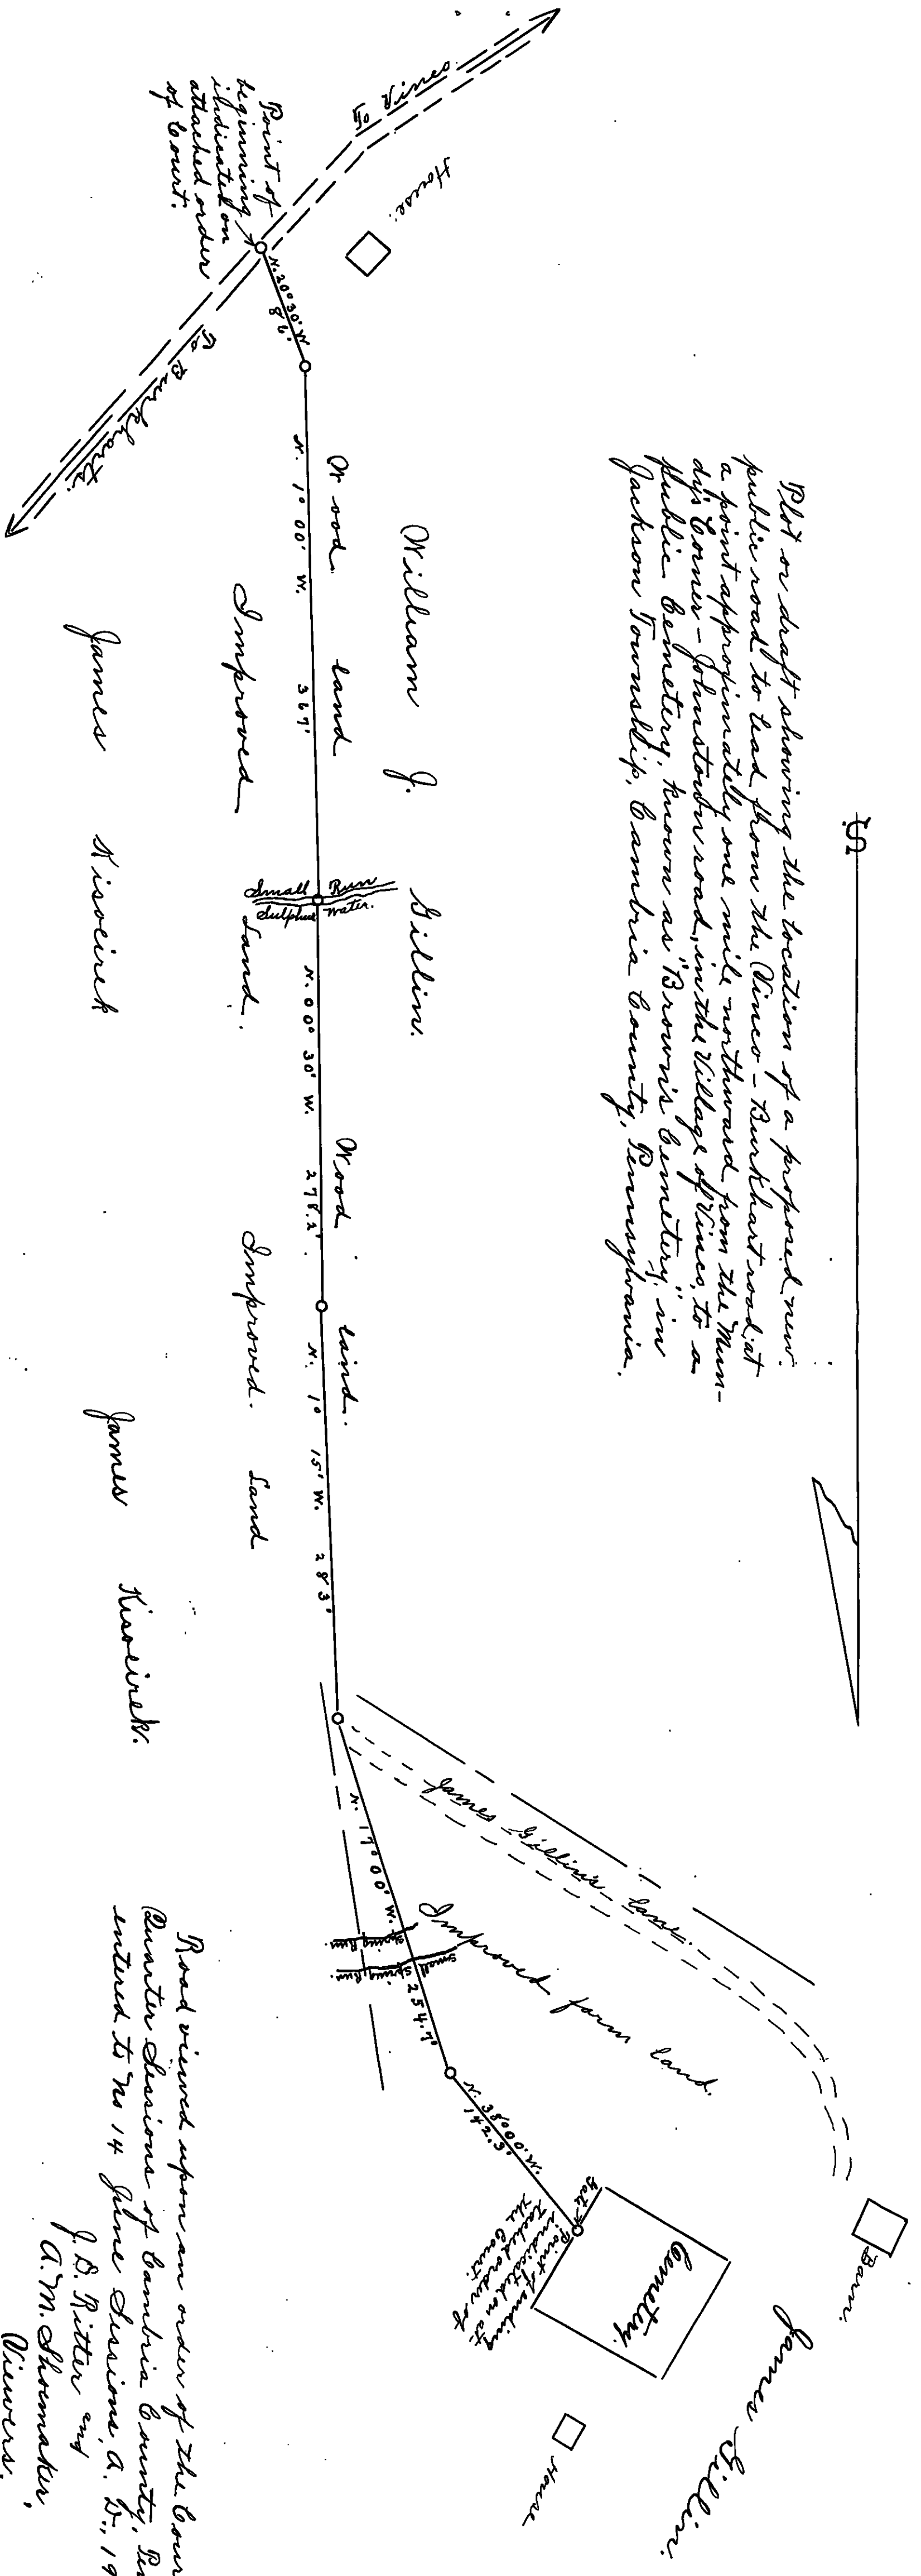 Plot or draft showing the location of a proposed new
public road to lead from the Vinco - Burkhart road, at
a point approximately one mile northward from the Mun-
dy's Corner - Johnstown road, in the Village of Vinco, to a
public Cemetery, known as "Brown's Cemetery," in
Jackson Township, Cambria County, Pennsylvania.
S
To Vinco.
House.
Point of
beginning
indicated on
attached order
of Court.
To Burkharts.
N. 20° 30' W.
86'
N. 1° 00' W. 367'
Wood land
William J. Gillin.
Improved Land.
James Kisoeirek
Small Run
Sulphur Water.
N. 00° 30' W. 278.2'
Wood land.
Improved. Land
N. 1° 15' W. 283'
James Kisoeirek.
James Gillin's lane.
N. 17° 00' W. 254.7'
Spring Run.
Small
Spring Run.
Improved farm land.
N. 38° 00' W.
142.3'
Gate
Point of ending
indicated on at-
tached order of
the Court
Cemetery.
Barn.
House
James Gillin.
Road viewed upon an order of the Cour
Quarter Sessions of Cambria County, Pen
entered to No 14 June Sessions, A. D., 19
J. D. Ritter and
A. M. Shoemaker,
Viewers.